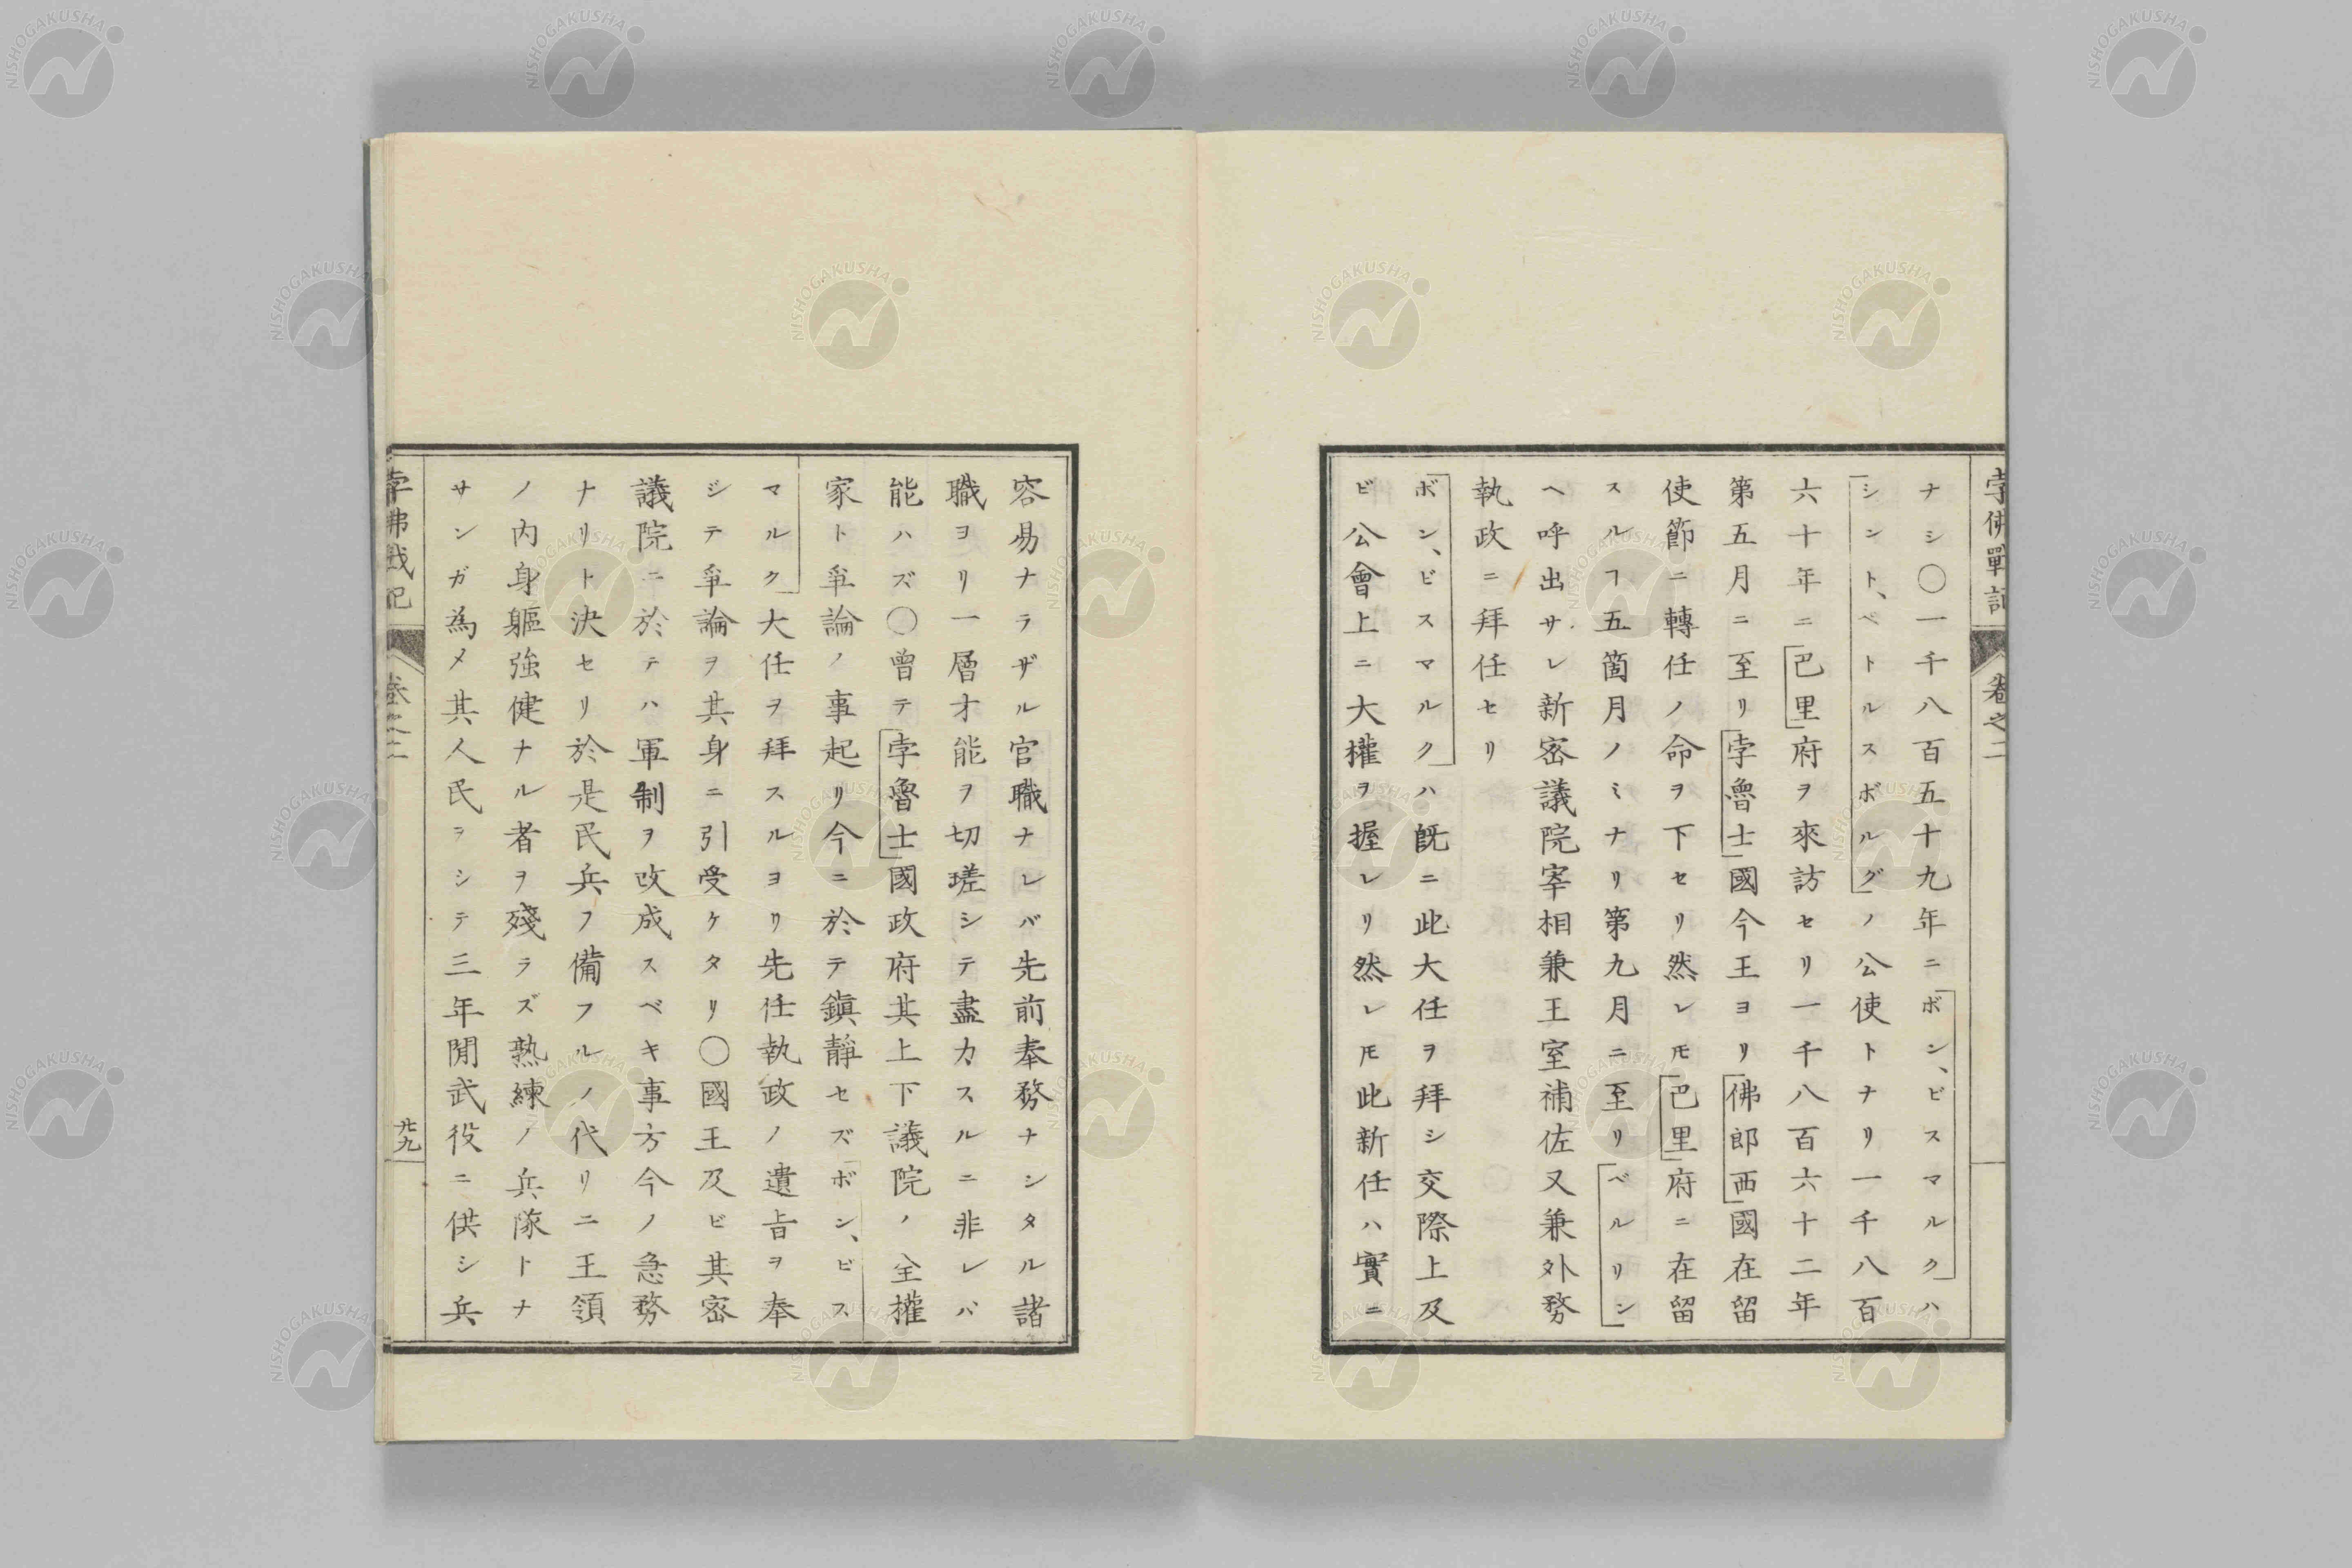 孛佛戰記 卷之二
ナシ〇一千八百五十九年ニボン、ビスマルクハ
シント、ペトルスボルグノ公使トナリ一千八百
六十年ニ巴里府ヲ來訪セリ一千八百六十二年
第五月ニ至リ孛魯士國今王ヨリ佛郎西國在留
使節ニ轉任ノ命ヲ下セリ然レ𪜈巴里府ニ在留
スルヿ五箇月ノミナリ第九月ニ至リベルリン
ヘ呼出サレ新密議院宰相兼王室補佐又兼外務
執政ニ拜任セリ
ボン、ビスマルクハ既ニ此大任ヲ拜シ交際上及
ビ公會上ニ大權ヲ握レリ然レ𪜈此新任ハ實ニ
容易ナラザル官職ナレバ先前奉務ナシタル諸
職ヨリ一層才能ヲ切瑳シテ盡力スルニ非レバ
能ハズ〇曾テ孛魯士國政府其上下議院ノ全權
家ト爭論ノ事起リ今ニ於テ鎭靜セズボン、ビス
マルク大任ヲ拜スルヨリ先任執政ノ遺旨ヲ奉
シテ爭論ヲ其身ニ引受ケタリ〇國王及ビ其密
議院ニ於テハ軍制ヲ改成スベキ事方今ノ急務
ナリト決セリ於是民兵フ備フルノ代リニ王領
ノ内身軀強健ナル者ヲ殘ラズ熟練ノ兵隊トナ
サンガ為メ其人民ヲシテ三年間武役ニ供シ兵
孛佛戰記 卷之二 廿九
NISHOGAKUSHA